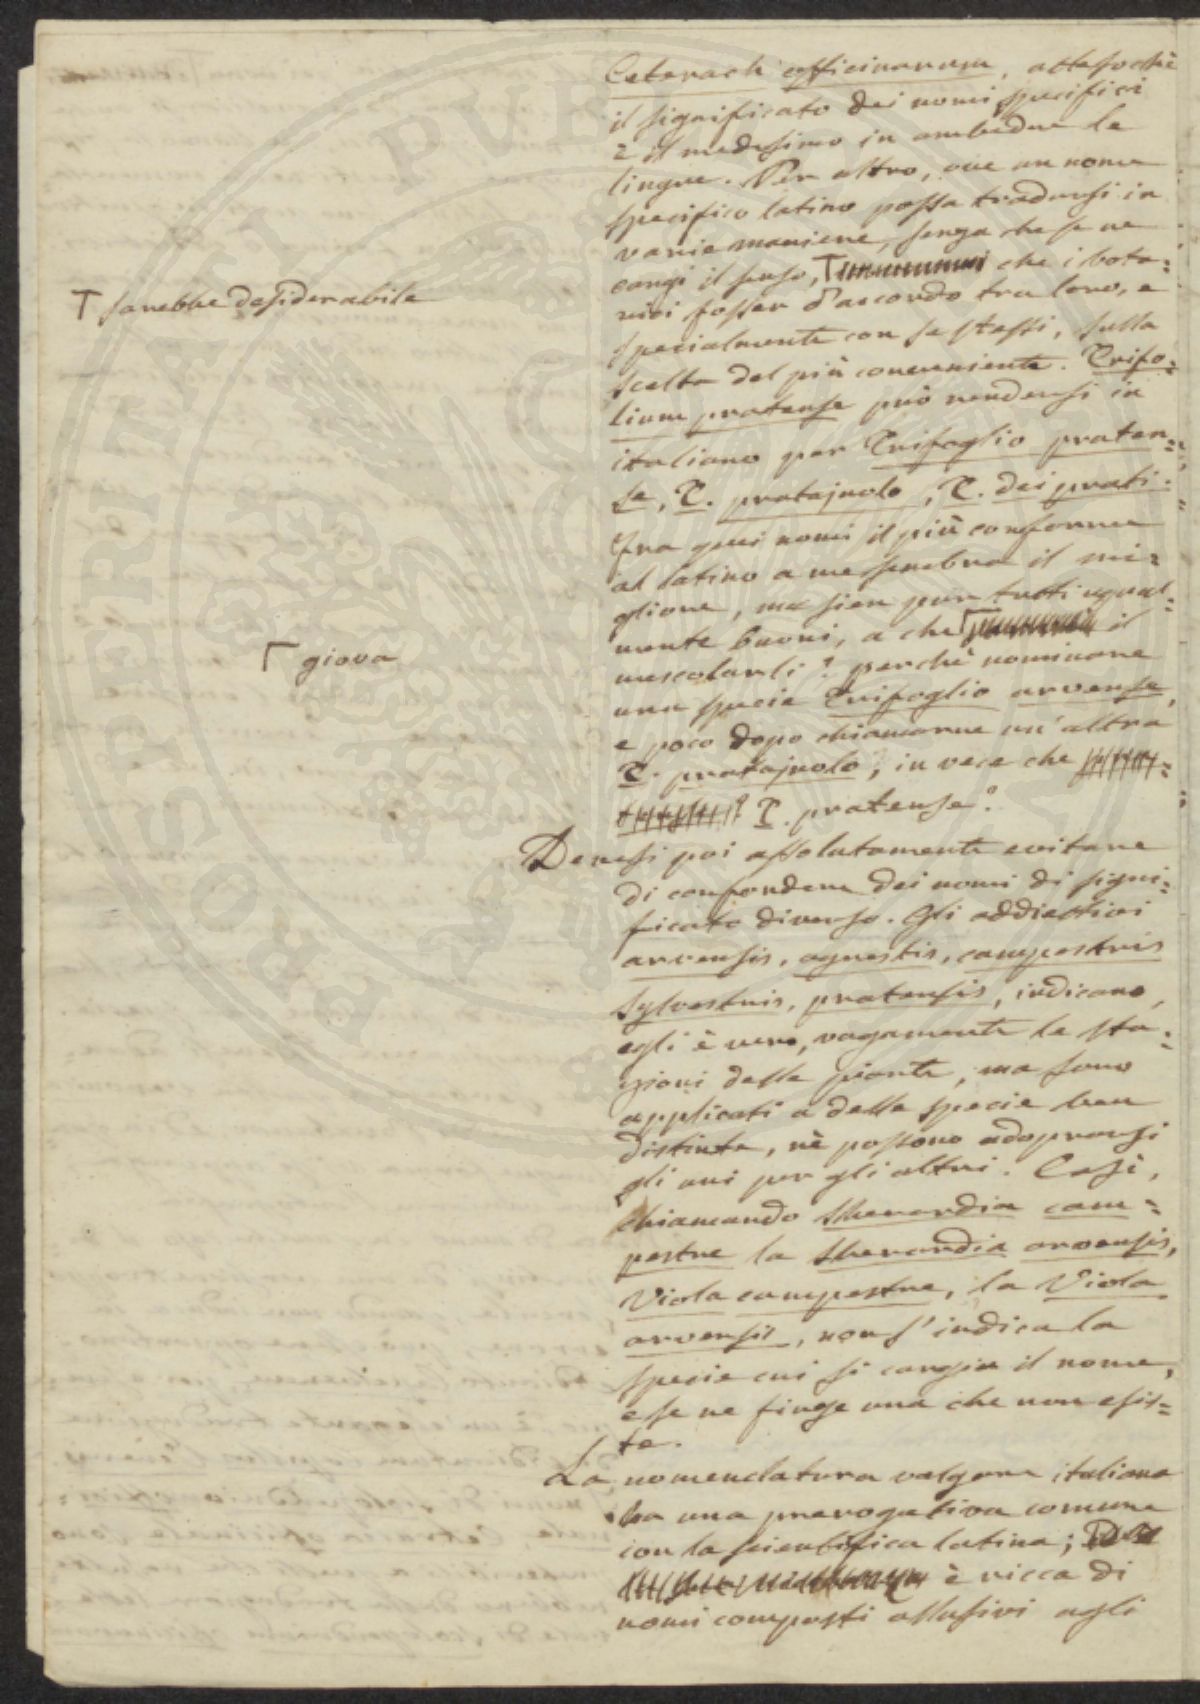 Ceterach officinarum, attesochè
il significato dei nomi specifici
è il medesimo in ambedue le
lingue. Per altro, ove un nome
specifico latino possa tradursi in
varie maniere, senza che se ne
cangi il senso, che i bota=
⊤ sarebbe desiderabile
nici fosser d'accordo tra loro, e
specialmente con se stessi, sulla
scelta del più conveniente. Trifo=
lium pratense può rendersi in
italiano per Trifoglio praten=
se, T. pratajuolo, T. dei prati.
Fra quei nomi il più conforme
al latino a me sembra il mi=
gliore, ma sien pur tutti ugual=
mente buoni, a che il
Γ giova
mescolarli? perchè nominare
una specie Trifoglio arvense,
e poco dopo chiamarne un'altra
T. pratajuolo, in vece che
T. pratense?
Devesi poi assolutamente evitare
di confondere dei nomi di signi=
ficato diverso. Gli addiettivi
arvensis, agrestis, campestris
sylvestris, pratensis, indicano,
egli è vero, vagamente le sta=
zioni delle piante, ma sono
applicati a delle specie ben
distinte, nè possono adoprarsi
gli uni per gli altri. Così,
chiamando Sherardia cam=
pestre la Sherardia arvensis,
Viola campestre, la Viola
arvensis, non s'indica la
specie cui si cangia il nome,
e se ne finge una che non esis=
te.
La nomenclatura volgare italiana
ha una prerogativa comune
con la scientifica latina;
è ricca di
nomi composti allusivi agli
PROSPERITATI PUBL